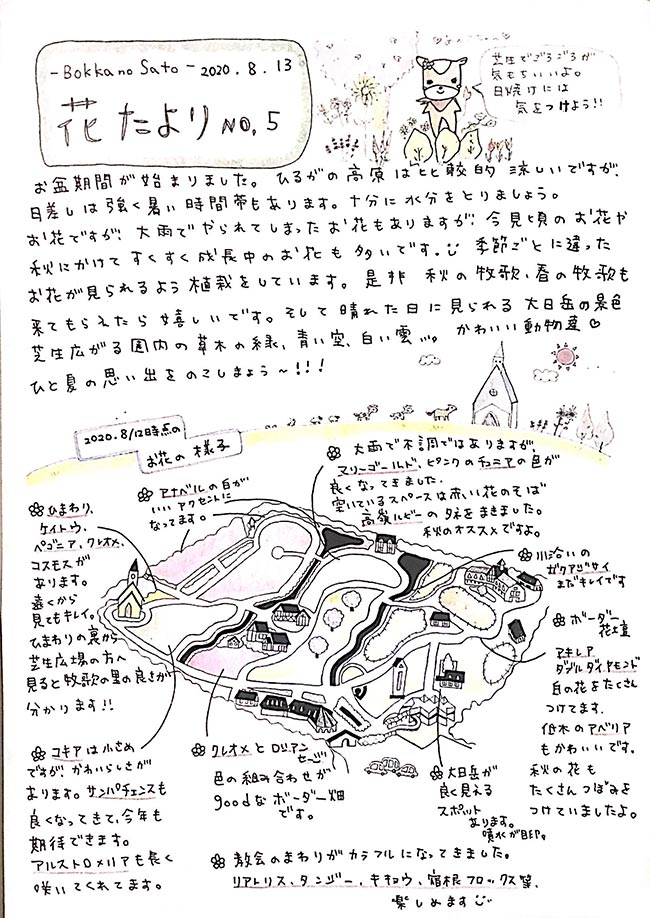 -Bokka no Sato- 2020.8.13
花たより NO,5
芝生でごろごろが
気もちいいよ。
日焼けには
気をつけよう!!
お盆期間が始まりました。ひるがの高原は比較的涼しいですが、
日差しは強く暑い時間帯もあります。十分に水分をとりましょう。
お花ですが、大雨でやられてしまったお花もありますが、今見頃のお花や
秋にかけてすくすく成長中のお花も多いです。季節ごとに違った
お花が見られるよう植栽をしています。是非 秋の牧歌、春の牧歌も
来てもらえたら嬉しいです。そして晴れた日に見られる大日岳の景色
芝生広がる園内の草木の緑、青い空、白い雲…。かわいい動物達♡
ひと夏の思い出をのこしましょう〜!!!
2020.8/12時点の
お花の様子
大雨で不調ではありますが、
マリーゴールド、ピンクのチュニアの色が
良くなってきました。
空いているスペースは赤い花のそば
高嶺ルビーのタネをまきました。
秋のオススメですよ。
アナベルの白が
いいアクセントに
なってます。
ひまわり、
ケイトウ、
ベゴニア、クレオメ、
コスモスが
あります。
遠くから
見てもキレイ。
ひまわりの裏から
芝生広場の方へ
見ると牧歌の里の良さが
分かります!!
川沿いの
ガクアジサイ
まだキレイです
ボーダー
花壇
アキレア
ダブルダイヤモンド
白の花をたくさん
つけてます。
低木のアベリア
もかわいいです。
秋の花も
たくさんつぼみを
つけていましたよ。
コキアは小さめ
ですが、かわいらしさが
あります。サンパチェンスも
良くなってきて、今年も
期待できます。
アルストロメリアも長く
咲いてくれてます。
クレオメとロシアン
セージ
色の組み合わせが
goodなボーダー畑
です。
大日岳が
良く見える
スポット
あります。
噴水が目印。
教会のまわりがカラフルになってきました。
リアトリス、タンジー、キキョウ、宿根フロックス等、
楽しめます